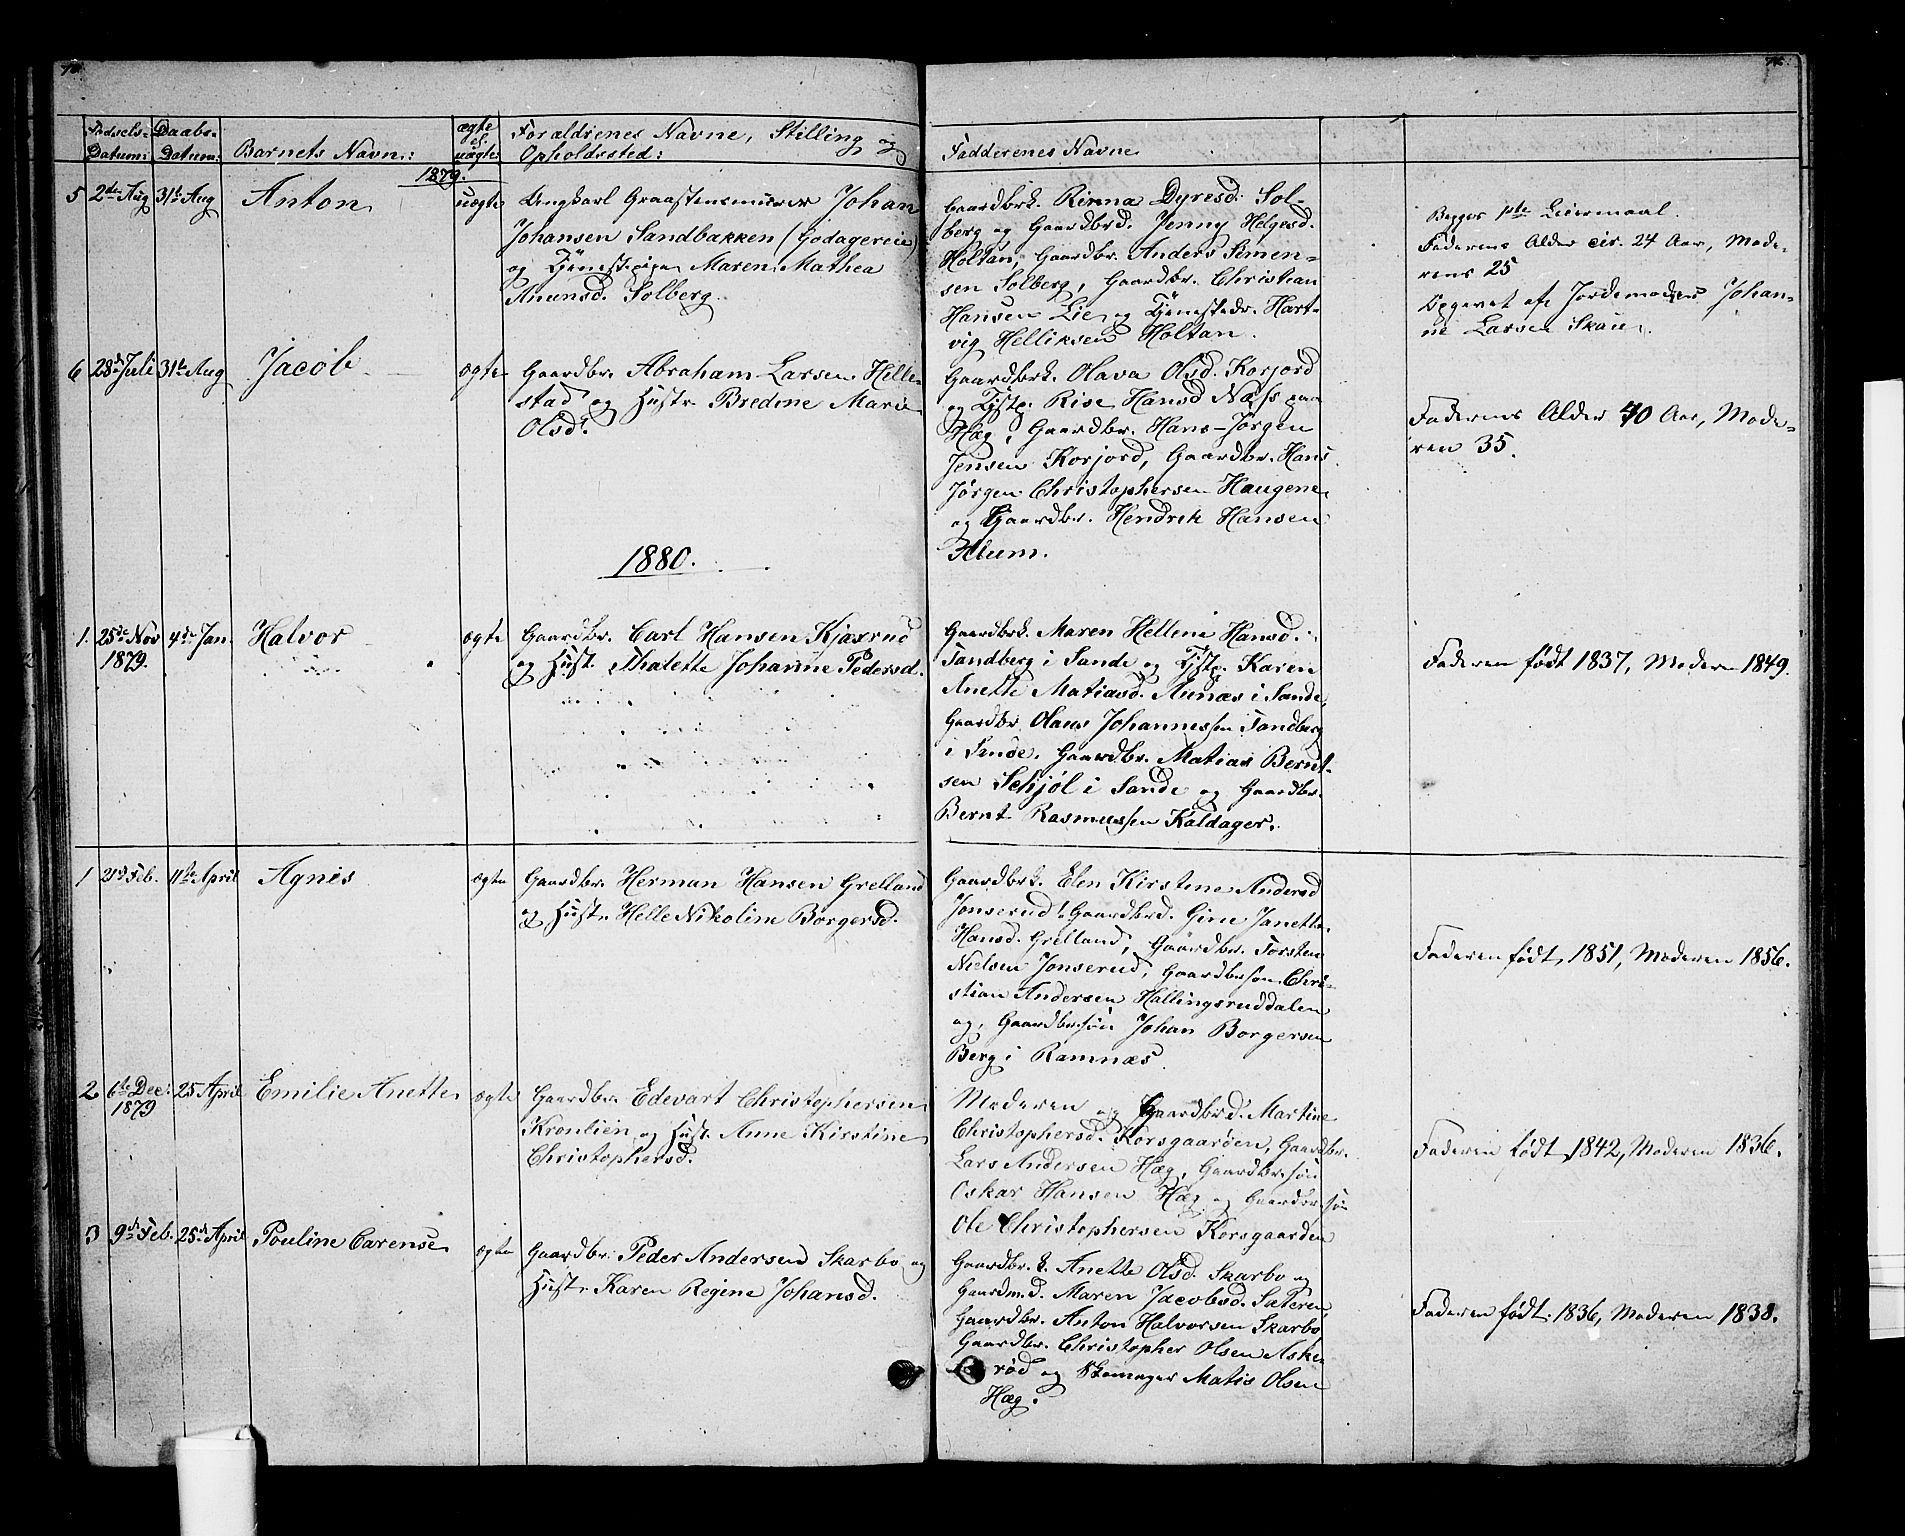 Fødsels-
Datum:
Daabs-
Datum:
Barnets Navn:
ægte
el.
uægte
Forældrenes Navne, Stilling og
Opholdssted:
Fadderenes Navne
1879.
5 2de Aug 31te Aug Anton uægte Ungkarl Graastensmurer Johan
Johansen Sandbakken (Godagereie)
og Tjenestepige Maren Mathea
Anunsd. Solberg.
Gaardbrk. Rinna Dyresd. Sol-
berg og Gaardbrd. Jenny Helgesd.
Holtan, Gaardbr. Anders Simen-
sen Solberg, Gaardbr. Christian
Hansen Lie og Tjenestedr. Hart-
vig Helliksen Holtan.
Begges 1ste Leiermaal.
Faderens Alder cir. 24 Aar, Mode-
rens 25
Opgevet af Jordemoder Johan-
ne Larsen Skau.
6 28de Juli 31te Aug Jacob ægte Gaardbr. Abraham Larsen Helle-
stad og Hustr. Bredine Marie
Olsd.
Gaardbrk. Olava Olsd. Korjord
og Tjstp. Rise Hansd Næss paa
Hæg, Gaardbr. Hans-Jørgen
Jensen Korjord, Gaardbr. Hans
Jørgen Christophersen Haugene
og Gaardbr. Hendrik Hansen
Klum.
Faderens Alder 40 Aar, Mode-
ren 35.
1880.
1. 25de Nov 4de Jan. Halvor ægte Gaardbr. Carl Hansen Kjærrud
1879. og Hust. Thalette Johanne Pedersd.
Gaardbrk. Maren Hellene Hansd.
Sandberg i Sande og Tjstp. Karen
Anette Matiasd. Aunæs i Sande,
Gaardbr Olaus Johannessen Sandberg
i Sande, Gaardbr. Matias Bernt-
sen Schjøl i Sande og Gaardbr.
Bernt Rasmussen Kaldager.
Faderen født 1837, Moderen 1849.
1 21de Feb. 11te April Agnes ægte Gaardbr. Herman Hansen Grelland
og Hustr. Helle Nikoline Borgersd.
Gaardbrk. Elen Kirstine Andersd
Jonserud, Gaardbrd. Gine Janette
Hansd. Grelland, Gaardbr. Torsten
Nielsen Jonserud, Gaardbrsøn Chri-
stian Andersen Hallingsruddalen
og, Gaardbrsøn Johan Borgersen
Berg i Ramnæs.
Faderen født, 1851, Moderen 1856.
2 6te Dec: 25 April Emilie Anette ægte Gaardbr Edevart Christophersen
1879 Kronlien og Hust. Anne Kirstine
Christophersd.
Moderen og Gaardbrd. Martine
Christophersd. Korsgaarden, Gaardbr.
Lars Andersen Hæg, Gaardbr.søn
Oskar Hansen Hæg og Gaardbr.søn
Ole Christophersen Korsgaarden
Faderen født 1842, Moderen 1836.
3 9de Feb. 25de April Pouline Carense ægte Gaardbr. Peder Andersen Skarbo og
Hustr. Karen Regine Johansd.
Gaardbr.k. Anette Olsd. Skarbo og
Gaardm.d. Maren Jacobsd. Sæteren,
Gaardbr. Anton Halvorsen Skarbo
Gaardbr. Christopher Olsen Aske-
rød og Skomager Matis Olsen
Hæg.
Faderen født. 1836, Moderen 1838.